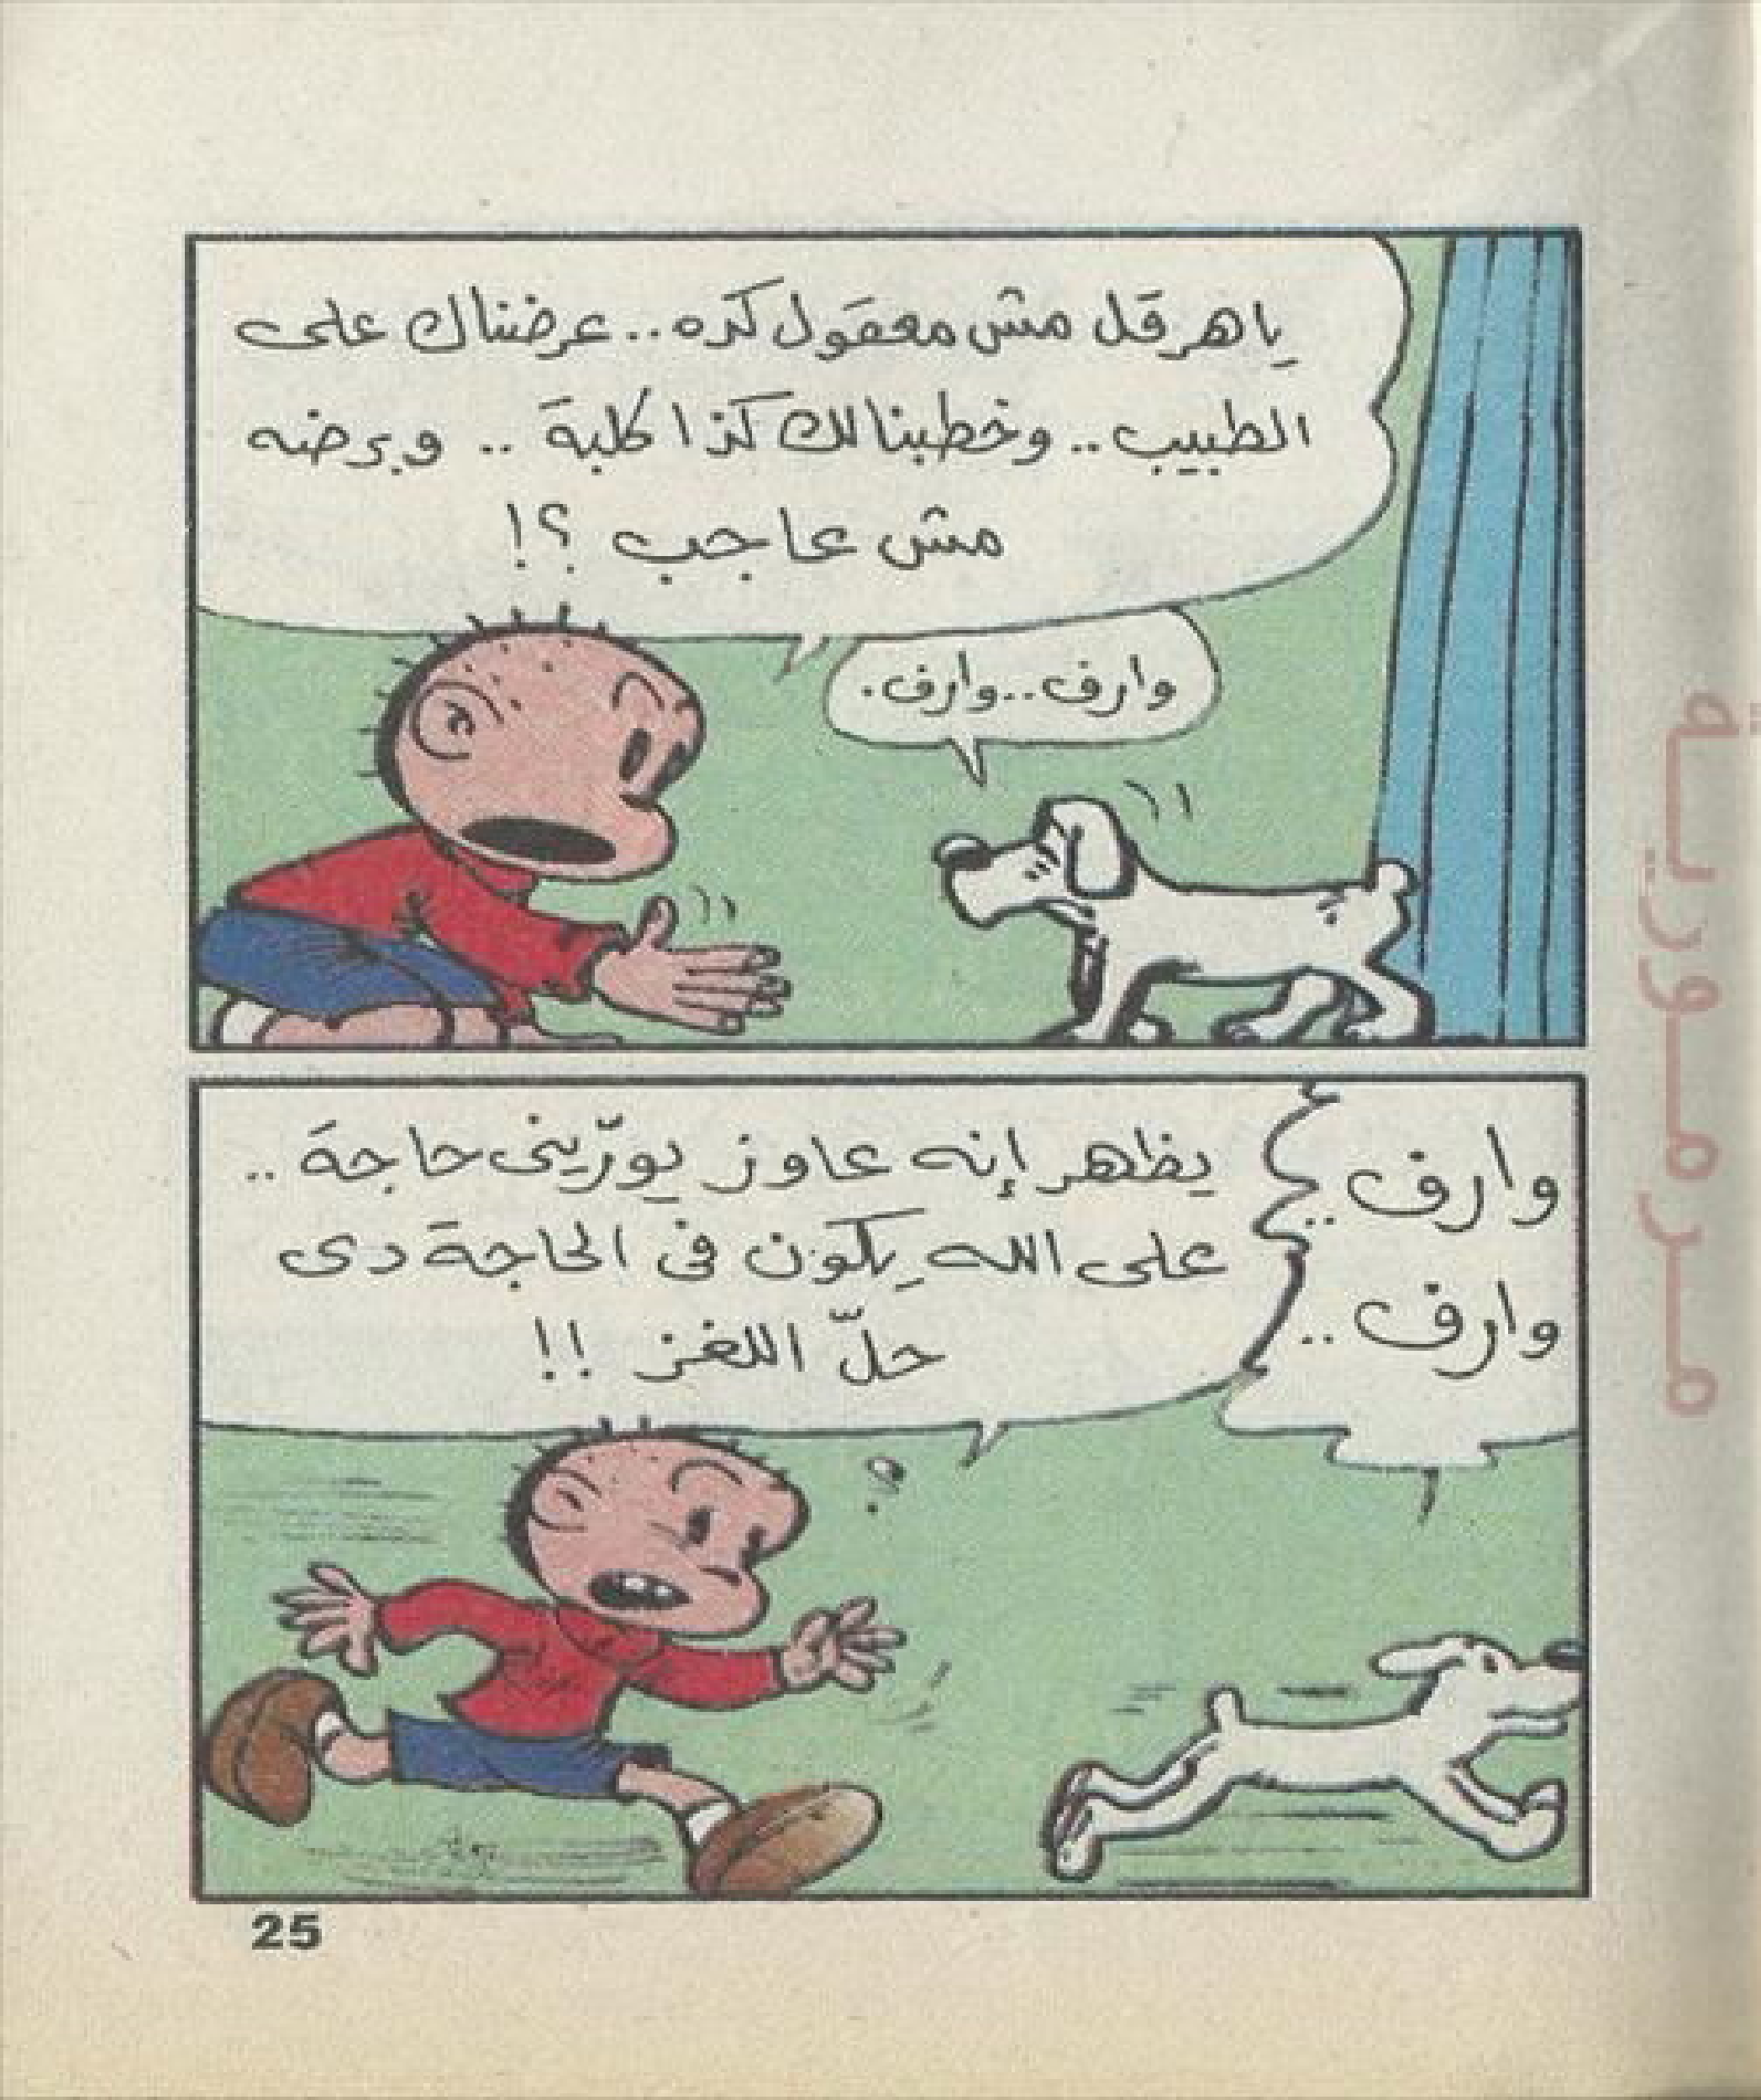 يا هرقل مش معقول كده .. عرضناك على
الطبيب .. وخطبنالك كذا كلبة .. وبرضه
مش عاجب ؟!
وارف .. وارف .
وارف ..
وارف ..
يظهر إنه عاوز يورّينى حاجة ..
على الله يكون فى الحاجة دى
حلّ اللغز !!
25
مرمورية